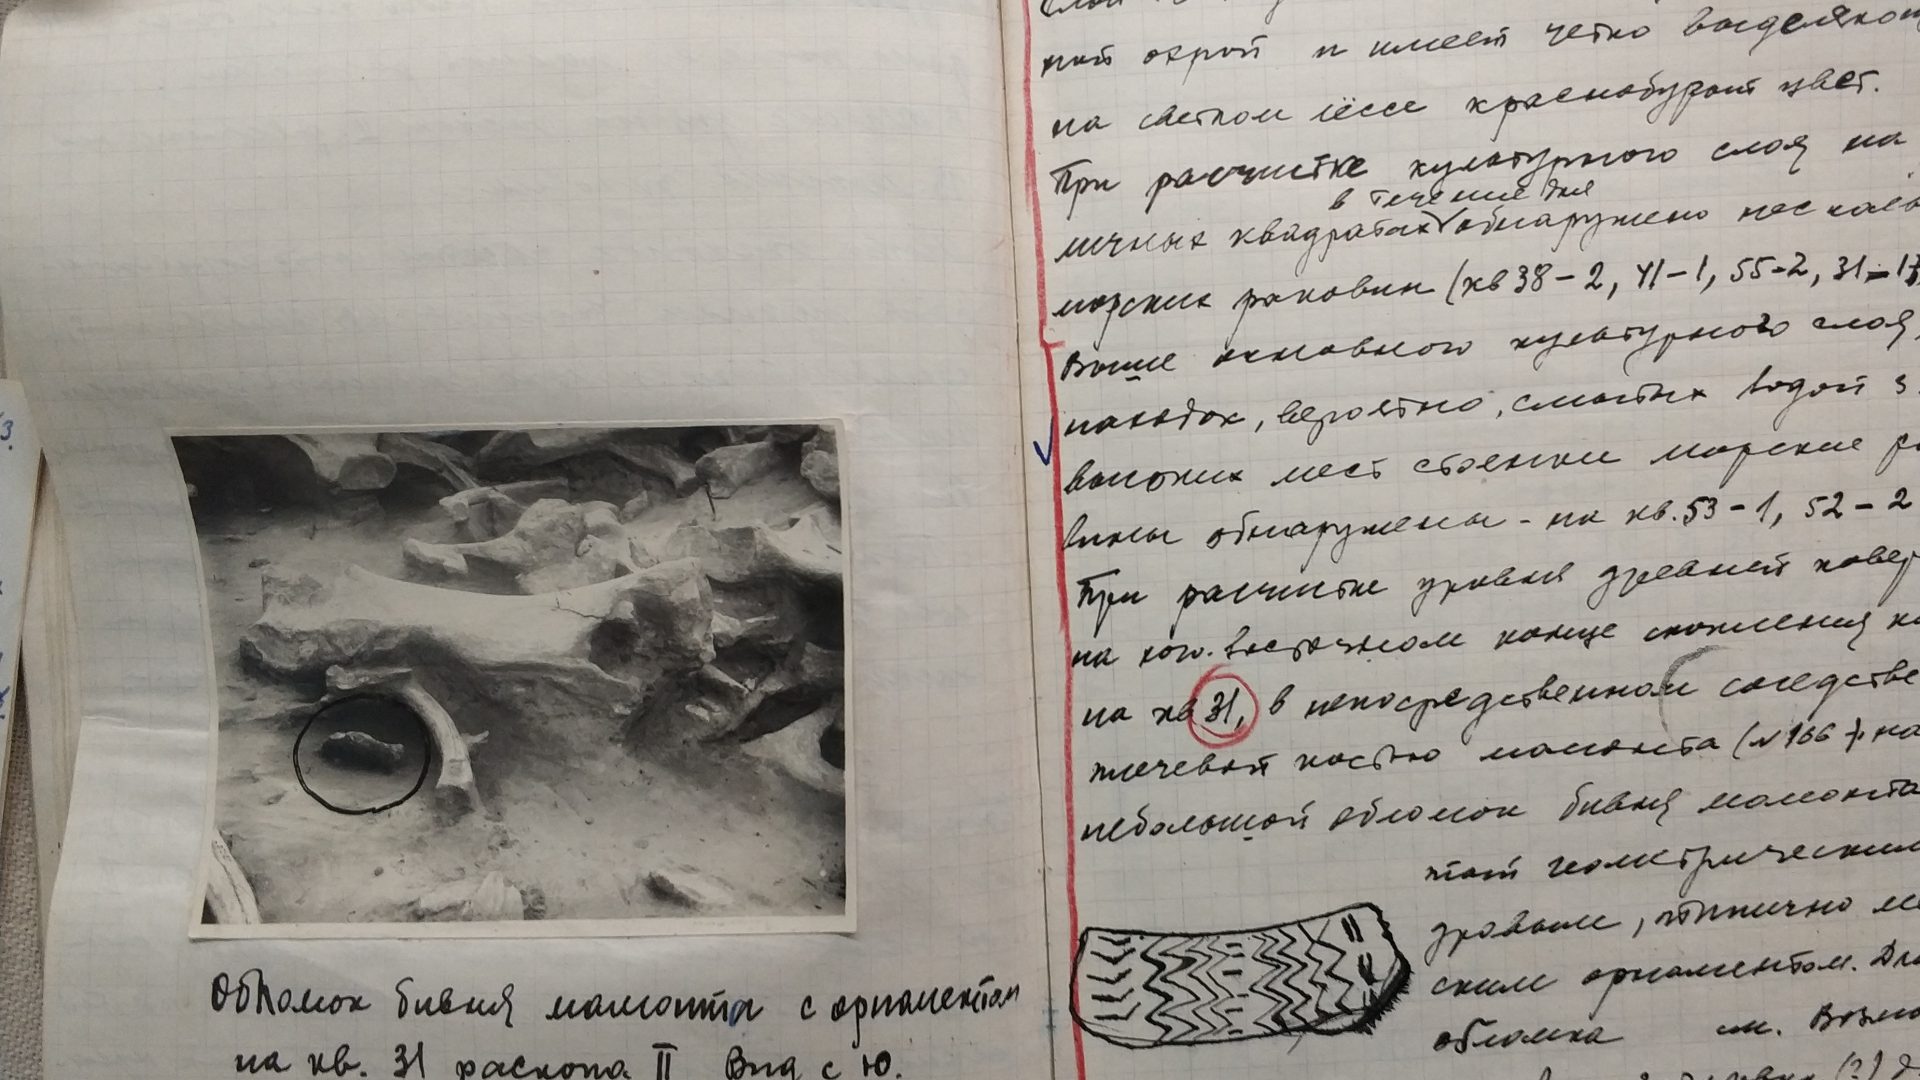 3.
Обломок бивня мамонта с орнаментом
на кв. 31 раскопа II Вид с Ю.
слой
ной охрой и имеет четко выделяющ
на светлом лёссе краснобурый цвет.
При расчистке культурного слоя на
в течение дня
личных квадратах обнаружено несколь
морских раковин (кв 38-2, 41-1, 55-2, 31-1
Выше основного культурного слоя,
находок, вероятно, смытых водой з
высоких мест стоянки морские ра
вины обнаружены - на кв. 53-1, 52-2
При расчистке уровня древней повер
на юго-восточном конце скопления ко
на кв 31, в непосредственном соседстве
плечевой костью мамонта (№166), на
небольшой обломок бивня мамонта
той геометрическим
ровкам, типично ме
ским орнаментом. Дли
обломка см. Возмо
(?)